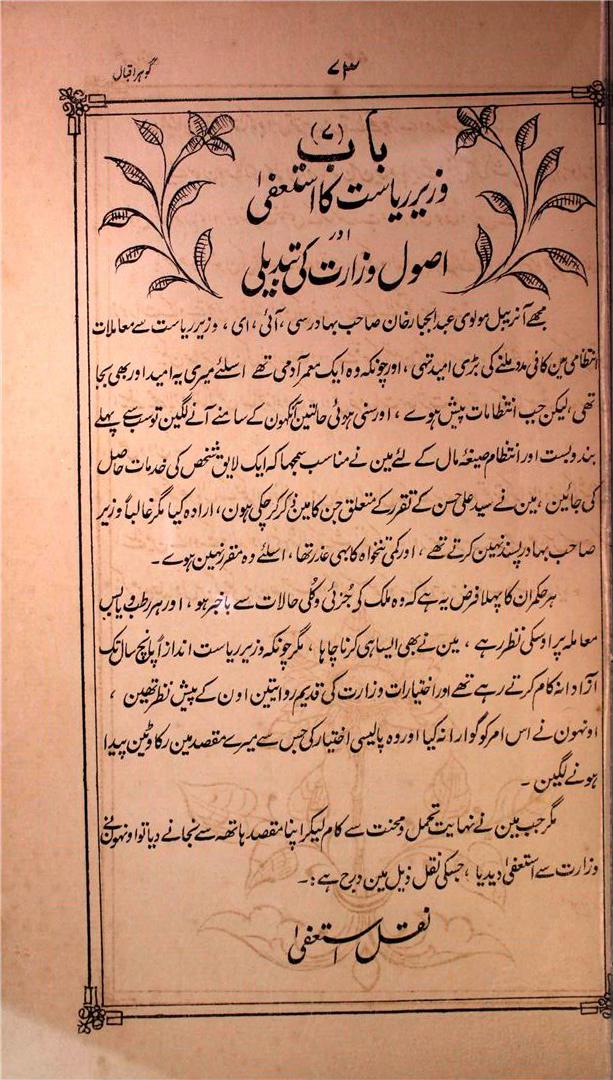 گوہر اقبال
۷۳
باب (۷)
وزیر ریاست کا استعفیٰ
اور
اصول وزارت کی تبدیلی
مجھے آنریبل مولوی عبدالجبار خان صاحب بہادر سی، آئی، ای، وزیر ریاست سے معاملات
انتظامی مین کافی مدد ملنے کی بڑی امید تہی، اور چونکہ وہ ایک معمر آدمی تھے اسلئے میری یہ امید اور بھی بجا
تھی، لیکن جب انتظامات پیش ہوے، اور سنی ہوئی حالتین آنکہون کے سامنے آنے لگین تو سب سے پہلے
بندوبست اور انتظام صیغۂ مال کے لئے مین نے مناسب سمجہا کہ ایک لایق شخص کی خدمات حاصل
کی جائین، مین نے سید علی حسن کے تقرر کے متعلق جن کا مین ذکر کر چکی ہون، ارادہ کیا مگر غالباً وزیر
صاحب بہادر پسند نہین کرتے تھے، اور کمی تنخواہ کا بھی عذر تھا، اسلئے وہ مقرر نہین ہوے۔
ہر حکمران کا پہلا فرض یہ ہے کہ وہ ملک کی جُزئی و کُلی حالات سے باخبر ہو، اور ہر رطب و یابس
معاملہ پر اوسکی نظر رہے، مین نے بھی ایسا ہی کرنا چاہا، مگر چونکہ وزیر ریاست اندازاً پانچ سال تک
آزادانہ کام کرتے رہے تھے اور اختیارات وزارت کی قدیم روایتین اون کے پیش نظر تھین،
اونہون نے اس امر کو گوارا نہ کیا اور وہ پالیسی اختیار کی جس سے میرے مقصد مین رکاوٹین پیدا
ہونے لگین۔
مگر جب مین نے نہایت تحمل و محنت سے کام لیکر اپنا مقصد ہاتھہ سے نجانے دیا تو اونہون نے
وزارت سے استعفیٰ دیدیا، جسکی نقل ذیل مین درج ہے:۔
نقل استعفیٰ